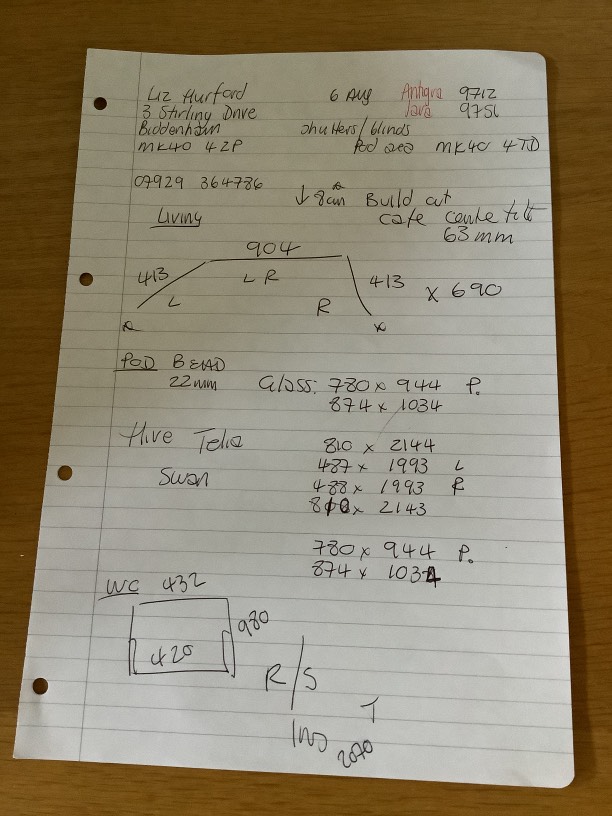 Liz Hurford 6 Aug Antigra 9712
3 Stirling Drive Java 9751
Biddenham shutters/blinds
MK40 4ZP Pod 2e0 MK40 4TD
07929 364786
↓ 8am Build out
Living cafe centre tilt
63mm
904
413 L R 413 x 690
L R
POD BEAD
22mm Glass: 780 x 944 P.
874 x 1034
Hive Telia 810 x 2144
487 x 1993 L
Swan 488 x 1993 R
810 x 2143
780 x 944 P.
874 x 1034
WC 432
980
420
R/S
T
INS
2070